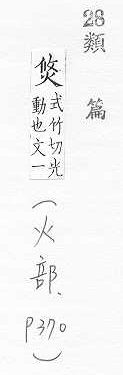 28類
篇
焂式竹切光
動也文一
（火部、
P370）